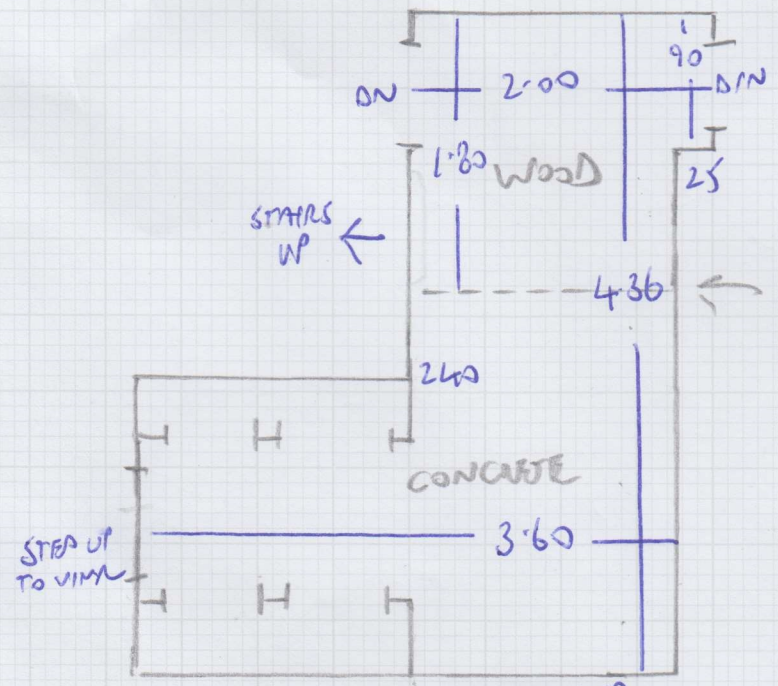 90
DN
2.00
D/N
1.80
WOOD
25
STAIRS
UP
4.36
240
CONCRETE
3.60
STEP UP
TO VINYL